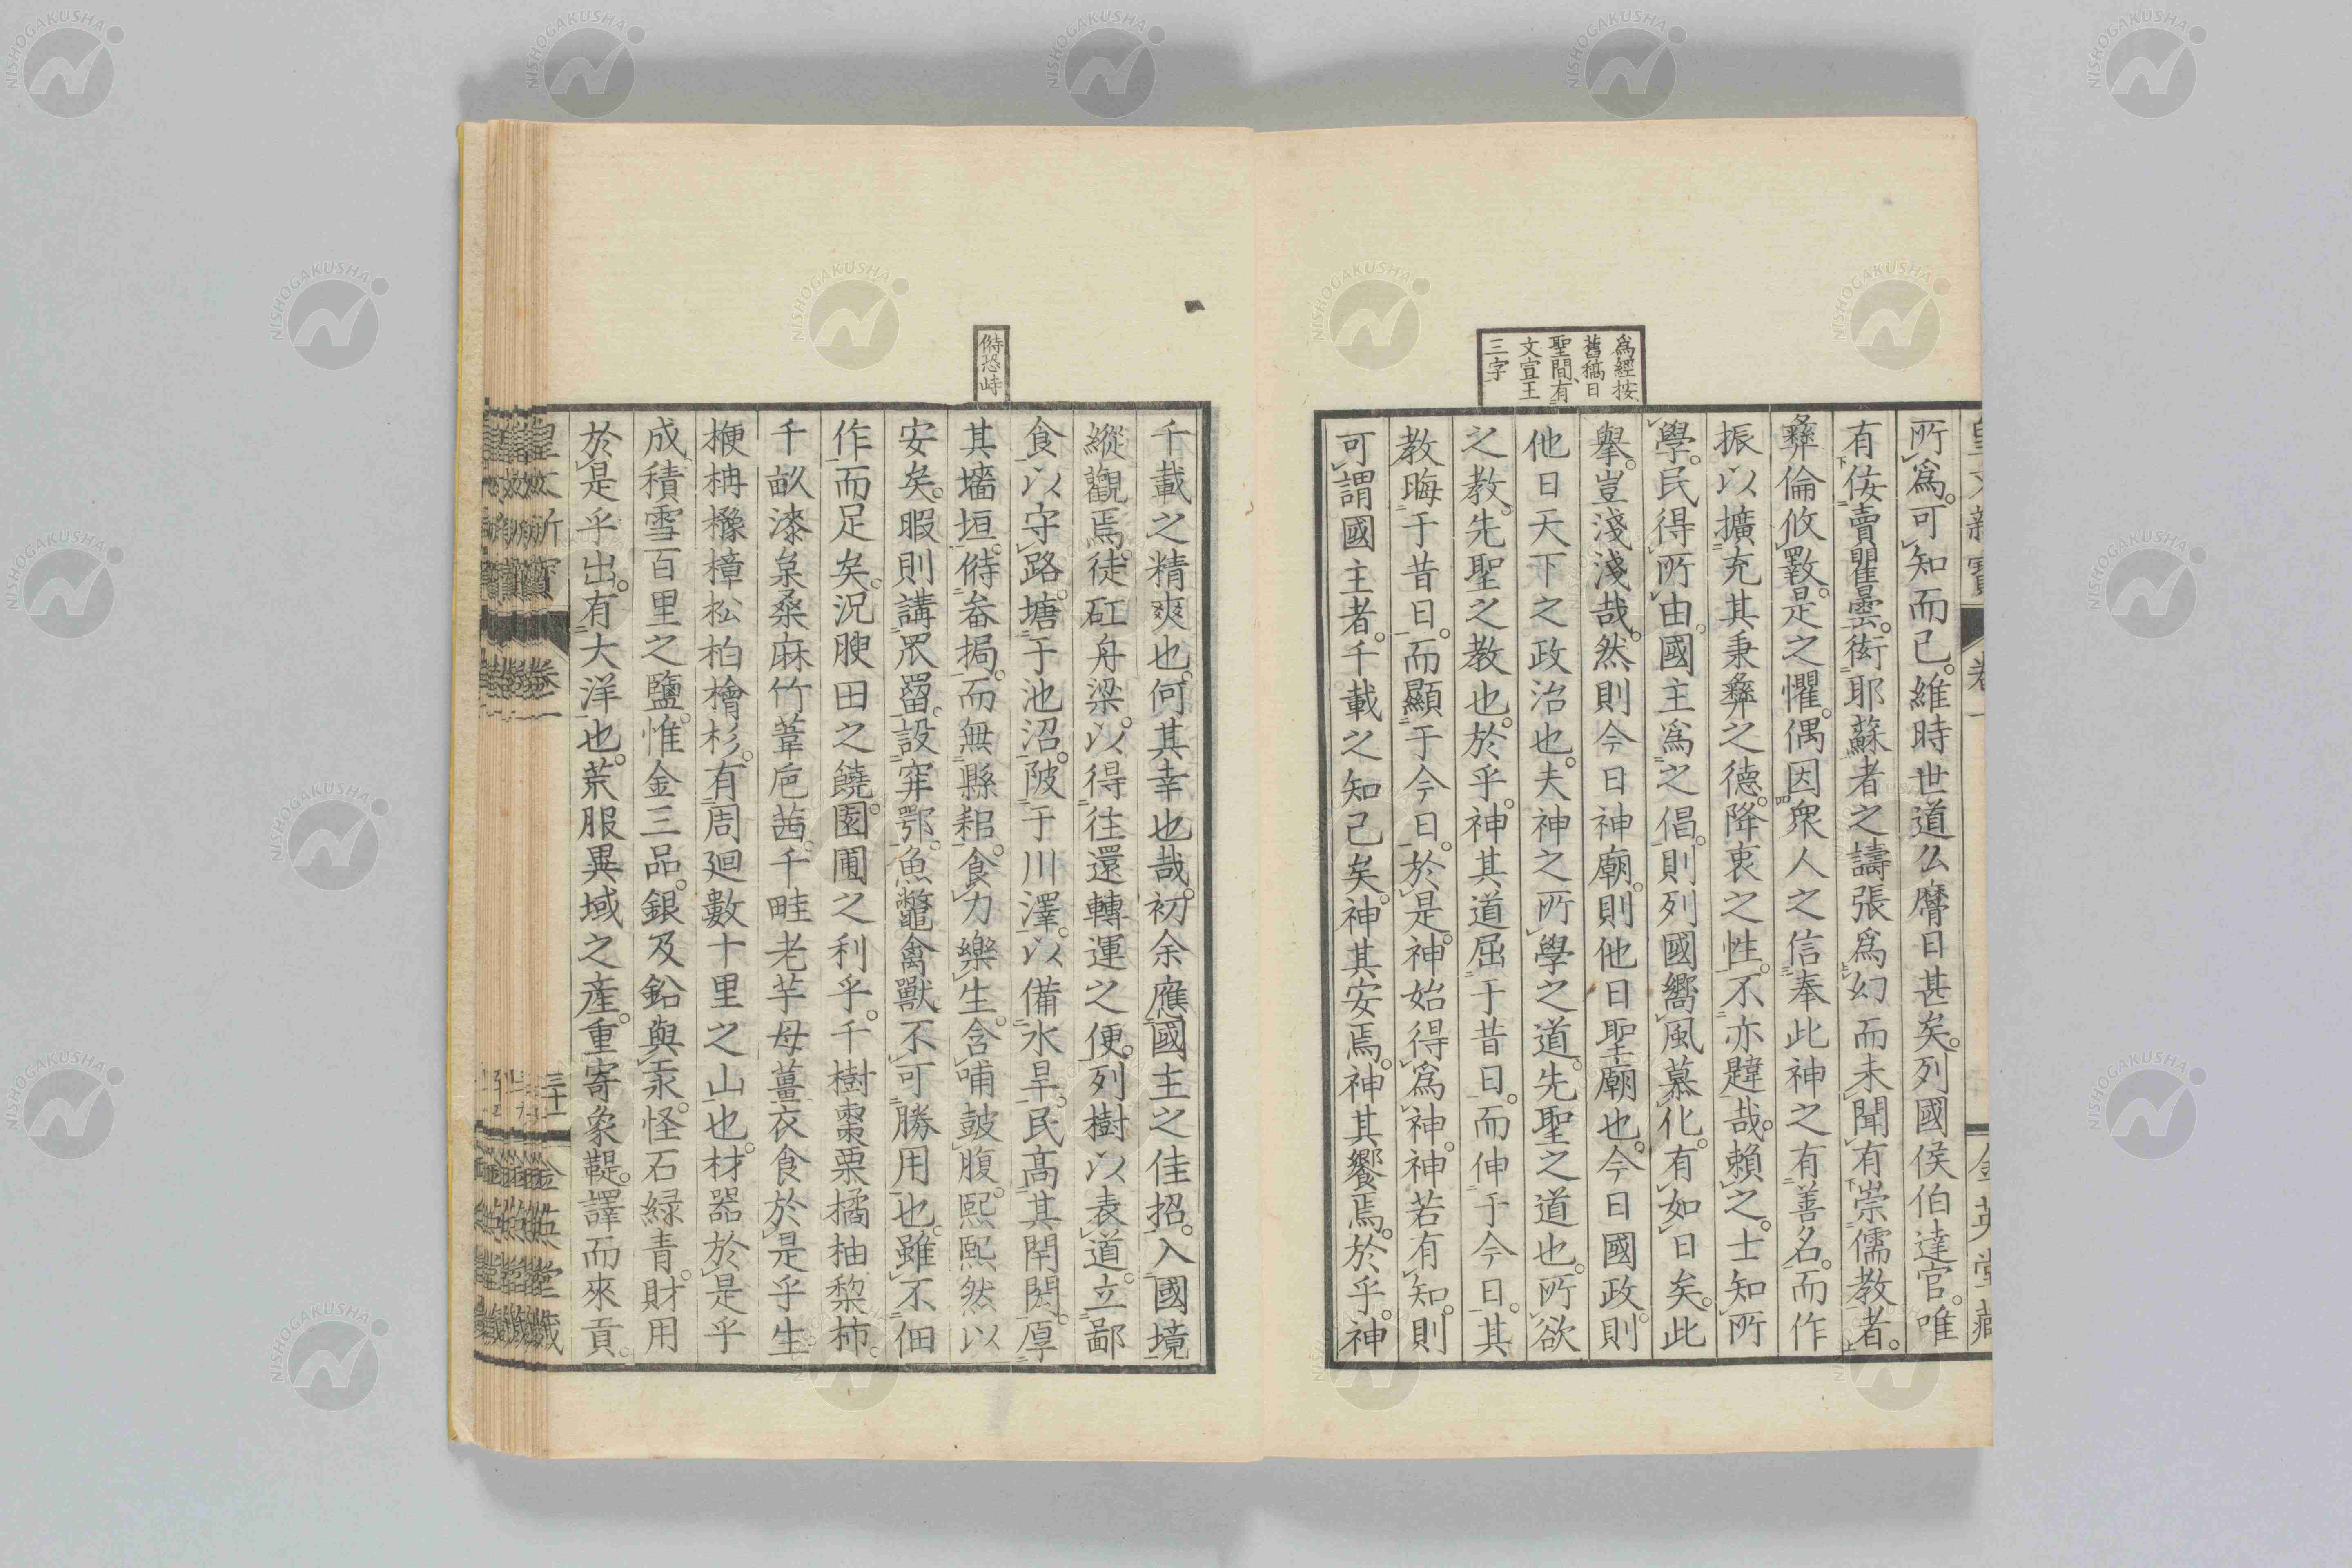 皇文新寶 卷一 金英堂藏
所爲。可知而已。維時世道么麿日甚矣。列國侯伯達官。唯
有佞賣瞿曇。衒耶蘇者之譸張爲幻而未聞有崇儒教者。
彝倫攸斁。是之懼。偶因衆人之信奉此神之有善名。而作
振以擴充其秉彝之德。降衷之性。不亦韙哉。賴之。士知所
學。民得所由。國主爲之倡。則列國嚮風慕化。有如日矣。此
擧。豈淺淺哉。然則今日神廟。則他日聖廟也。今日國政。則
他日天下之政治也。夫神之所學之道。先聖之道也。所欲
之教。先聖之教也。於乎。神其道屈于昔日。而伸于今日。其
教晦于昔日。而顯于今日。於是。神始得爲神。神若有知。則
可謂國主者。千載之知己矣。神其安焉。神其饗焉。於乎。神
爲經按
舊稿日
聖間、有
文宣王
三字
千載之精爽也。何其幸也哉。初余應國主之佳招。入國境
縱觀焉。徒矼舟梁。以得往還轉運之便。列樹以表道。立鄙
食以守路。塘于池沼。陂于川澤。以備水旱。民高其閈閎。厚
其墻垣。偫畚挶。而無縣耜。食力樂生。含哺鼓腹。熙熙然以
安矣。暇則講罛罶。設穽鄂。魚鼈禽獸。不可勝用也。雖不佃
作而足矣。況腴田之饒。園圃之利乎。千樹棗栗橘柚梨柿。
千畝漆枲桑麻竹葦巵茜。千畦老芋母薑衣食於是乎生
楩柟櫲樟松柏檜杉。有周廻數十里之山也。材器於是乎
成。積雪百里之鹽。惟金三品。銀及鉛與汞。怪石綠青。財用
於是乎出。有大洋也。荒服異域之產。重寄象鞮。譯而來貢。
偫恐峙
皇文新寶 卷一 三十一 金英堂藏